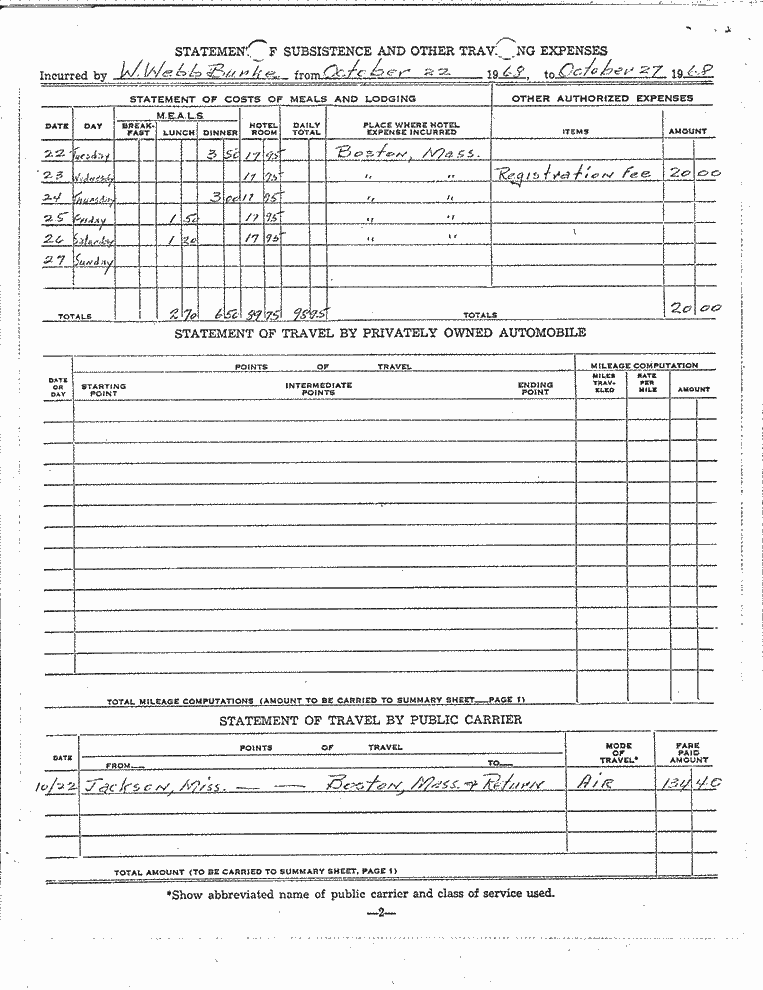 STATEMEN F SUBSISTENCE AND OTHER TRAV NG EXPENSES
Incurred by W. Webb Burke from October 22 1968, to October 27 1968
STATEMENT OF COSTS OF MEALS AND LODGING OTHER AUTHORIZED EXPENSES
DATE DAY MEALS BREAK-FAST LUNCH DINNER HOTEL ROOM DAILY TOTAL PLACE WHERE HOTEL EXPENSE INCURRED ITEMS AMOUNT
22 Tuesday 3 50 17 95 Boston, Mass.
23 Wednesday 17 95 " " Registration Fee 20 00
24 Thursday 3 00 17 95 " "
25 Friday 1 50 17 95 " "
26 Saturday 1 20 17 95 " "
27 Sunday
TOTALS 2 70 6 50 89 75 98 95 TOTALS 20 00
STATEMENT OF TRAVEL BY PRIVATELY OWNED AUTOMOBILE
POINTS OF TRAVEL MILEAGE COMPUTATION
DATE OR DAY STARTING POINT INTERMEDIATE POINTS ENDING POINT MILES TRAV-ELED RATE PER MILE AMOUNT
TOTAL MILEAGE COMPUTATIONS (AMOUNT TO BE CARRIED TO SUMMARY SHEET—PAGE 1)
STATEMENT OF TRAVEL BY PUBLIC CARRIER
DATE POINTS OF TRAVEL MODE OF TRAVEL* FARE PAID AMOUNT
FROM— TO—
10/22 Jackson, Miss. — — Boston, Mass. & Return Air 134 40
TOTAL AMOUNT (TO BE CARRIED TO SUMMARY SHEET, PAGE 1)
*Show abbreviated name of public carrier and class of service used.
—2—